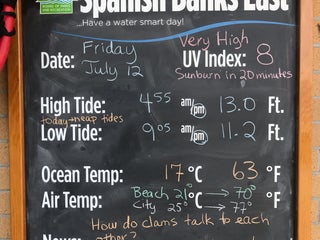 Spanish Banks East
...Have a water smart day!
Date: Friday July 12
Very High
UV Index: 8
Sunburn in 20 minutes
High Tide: 4:55 am/pm 13.0 Ft.
today → neap tides
Low Tide: 9:05 am/pm 11.2 Ft.
Ocean Temp: 17 °C 63 °F
Air Temp: Beach 21° °C → 70° °F
City 25° → 77°
How do clams talk to each
other?